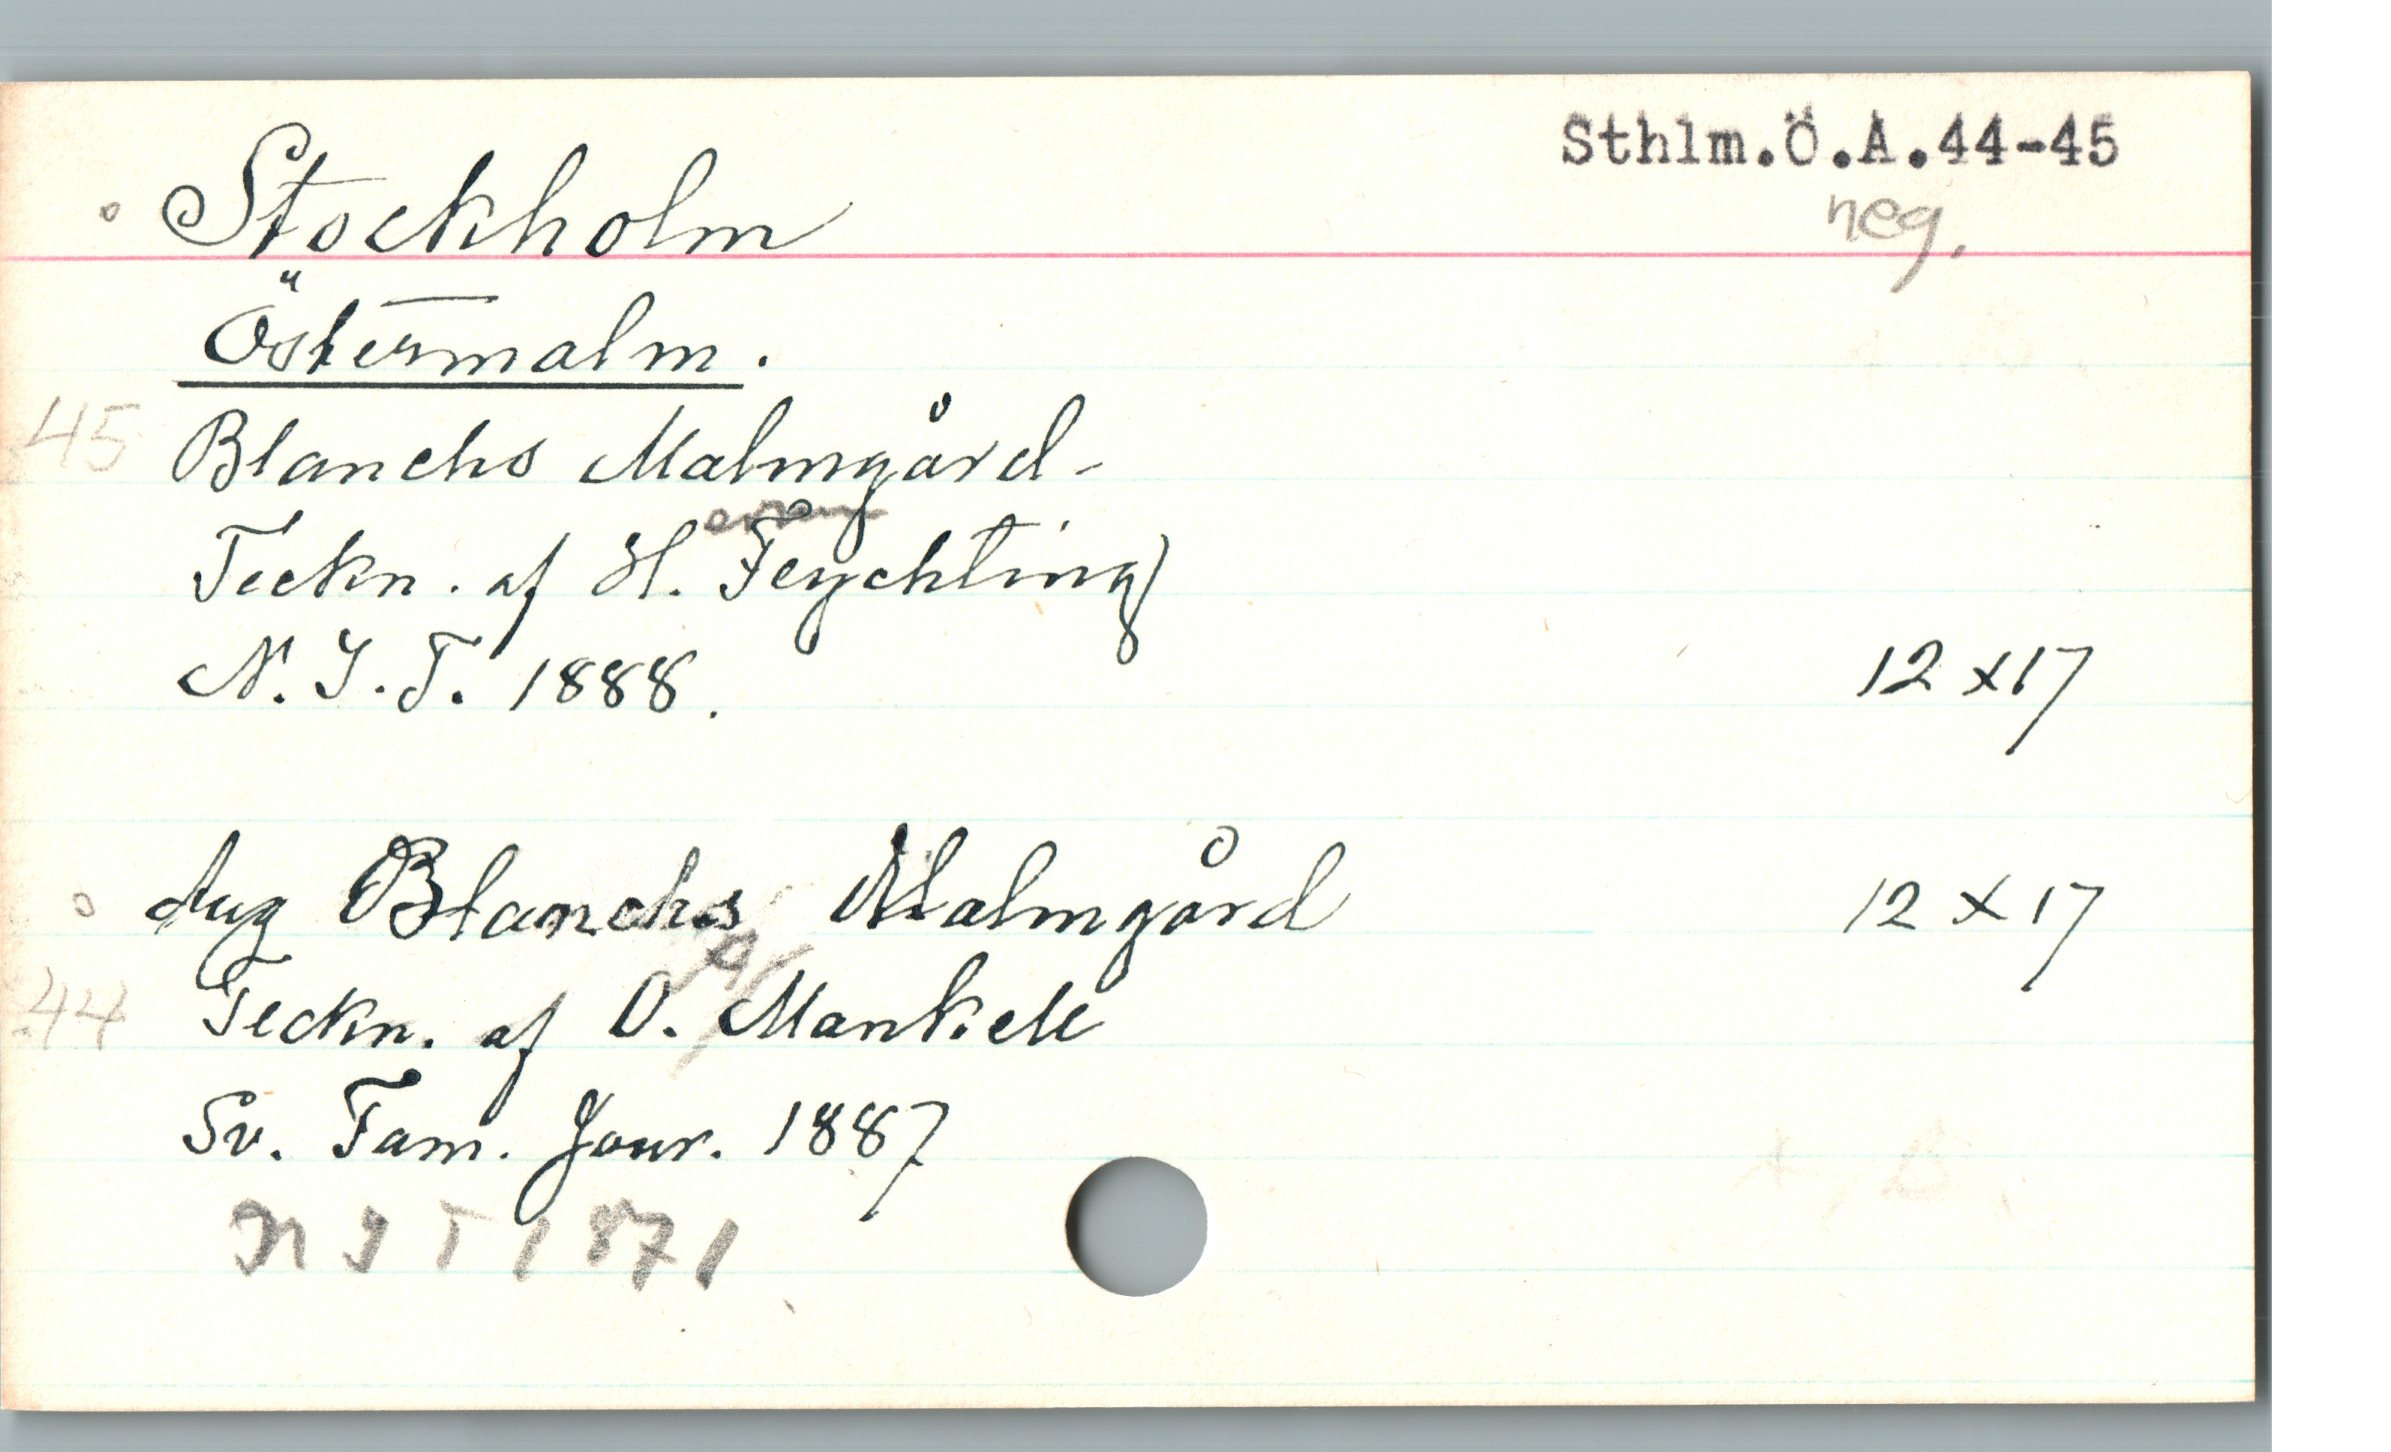 Sthlm.Ö.A.44-45
neg.
Stockholm
Östermalm.
45 Blanchs Malmgård-
Teckn. af H. Feychting
N.I.T. 1888. 12 x 17
Aug Blanchs Malmgård 12 x 17
44 Teckn. af O. Mankell
Sv. Fam. Jour. 1887
N I T 1871